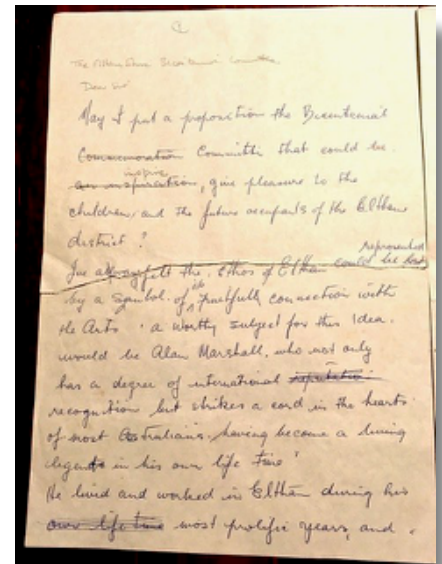 The Bicentennial Committee
Dear Sir
May I put a proposition the Bicentenial
Commemoration Committee that could be
an inspiration, inspire, give pleasure to the
children, and the future occupants of the Eltham
district?
I've always felt the Ethos of Eltham could be best represented
by a symbol of its fruitfull connection with
the Arts. a worthy subject for this idea
would be Alan Marshall, who not only
has a degree of international reputation
recognition but strikes a cord in the hearts
of most Australians, having become a living
legend in his own life time!
He lived and worked in Eltham during his
own life time most prolific years, and